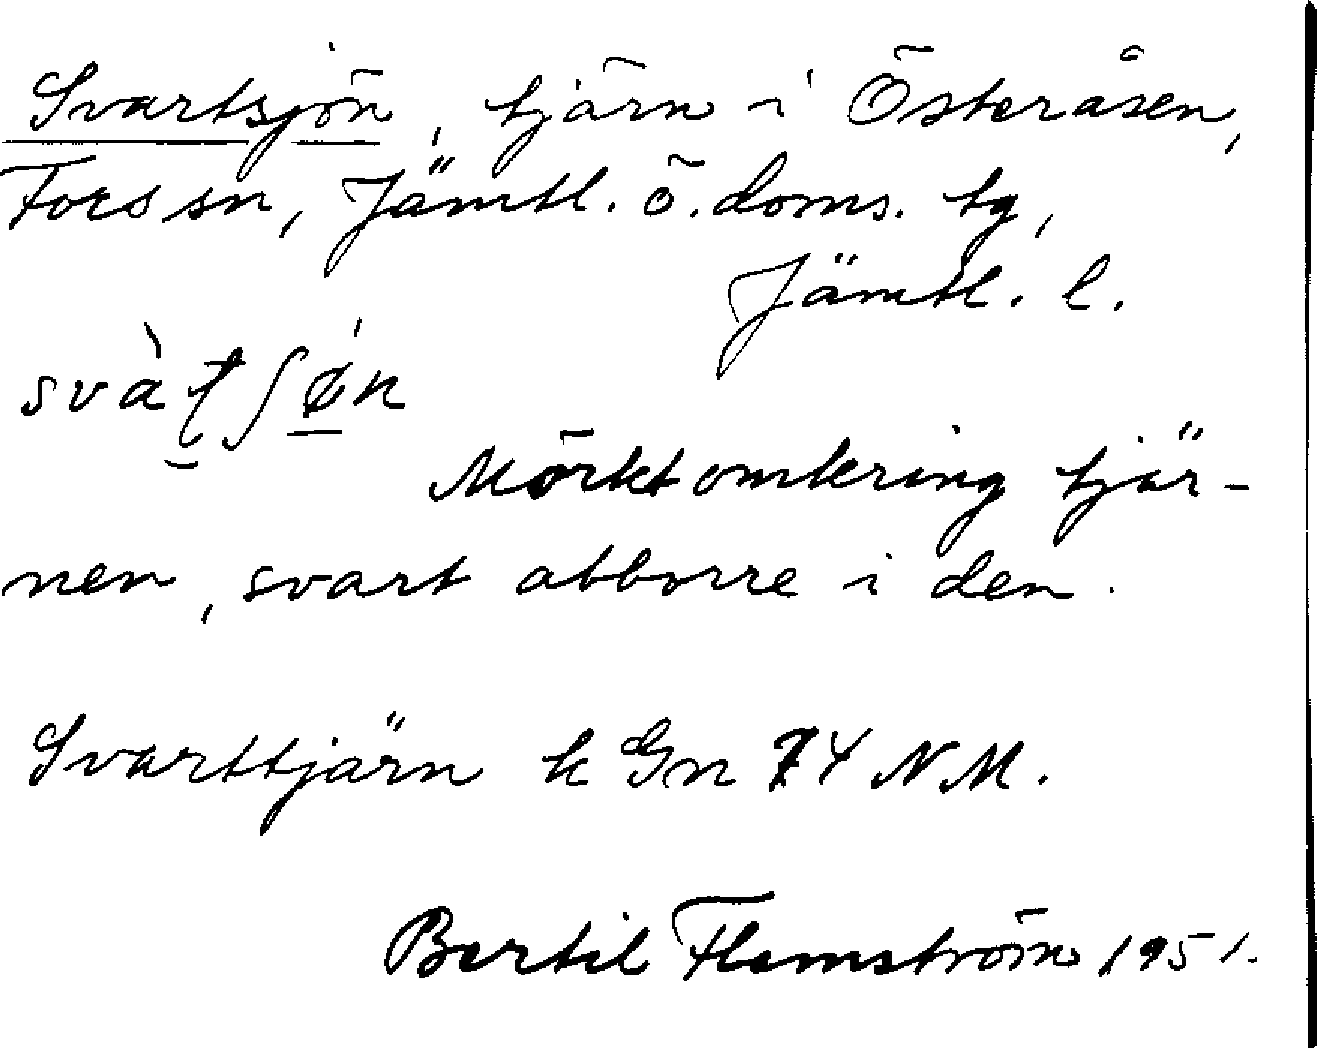 Svartsjön, tjärn i Österåsen,
Fors sn, Jämtl. ö. doms. tg,
Jämtl. l.
svàʈʃøn
Mörkt omkring tjär-
nen, svart abborre i den.
Svarttjärn k Gn 74 NM.
Bertil Flemström 1951.